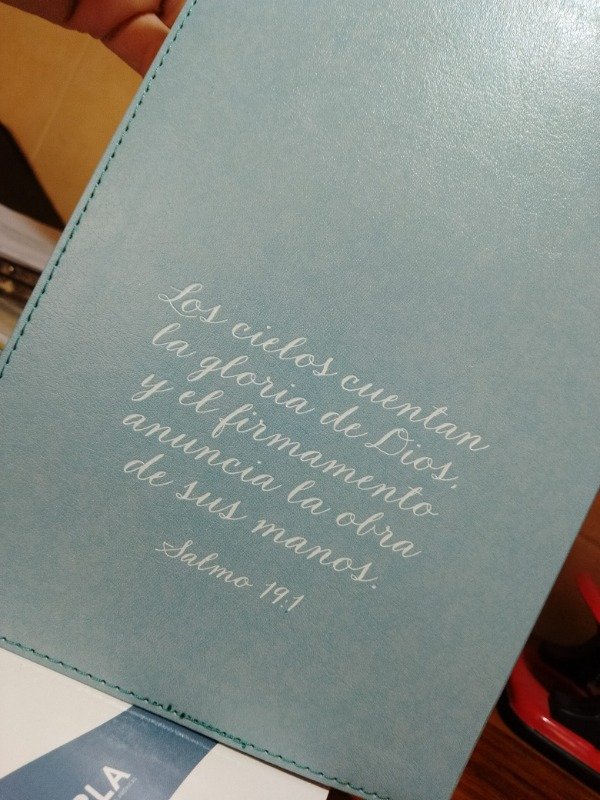 Los cielos cuentan
la gloria de Dios,
y el firmamento
anuncia la obra
de sus manos.
Salmo 19:1